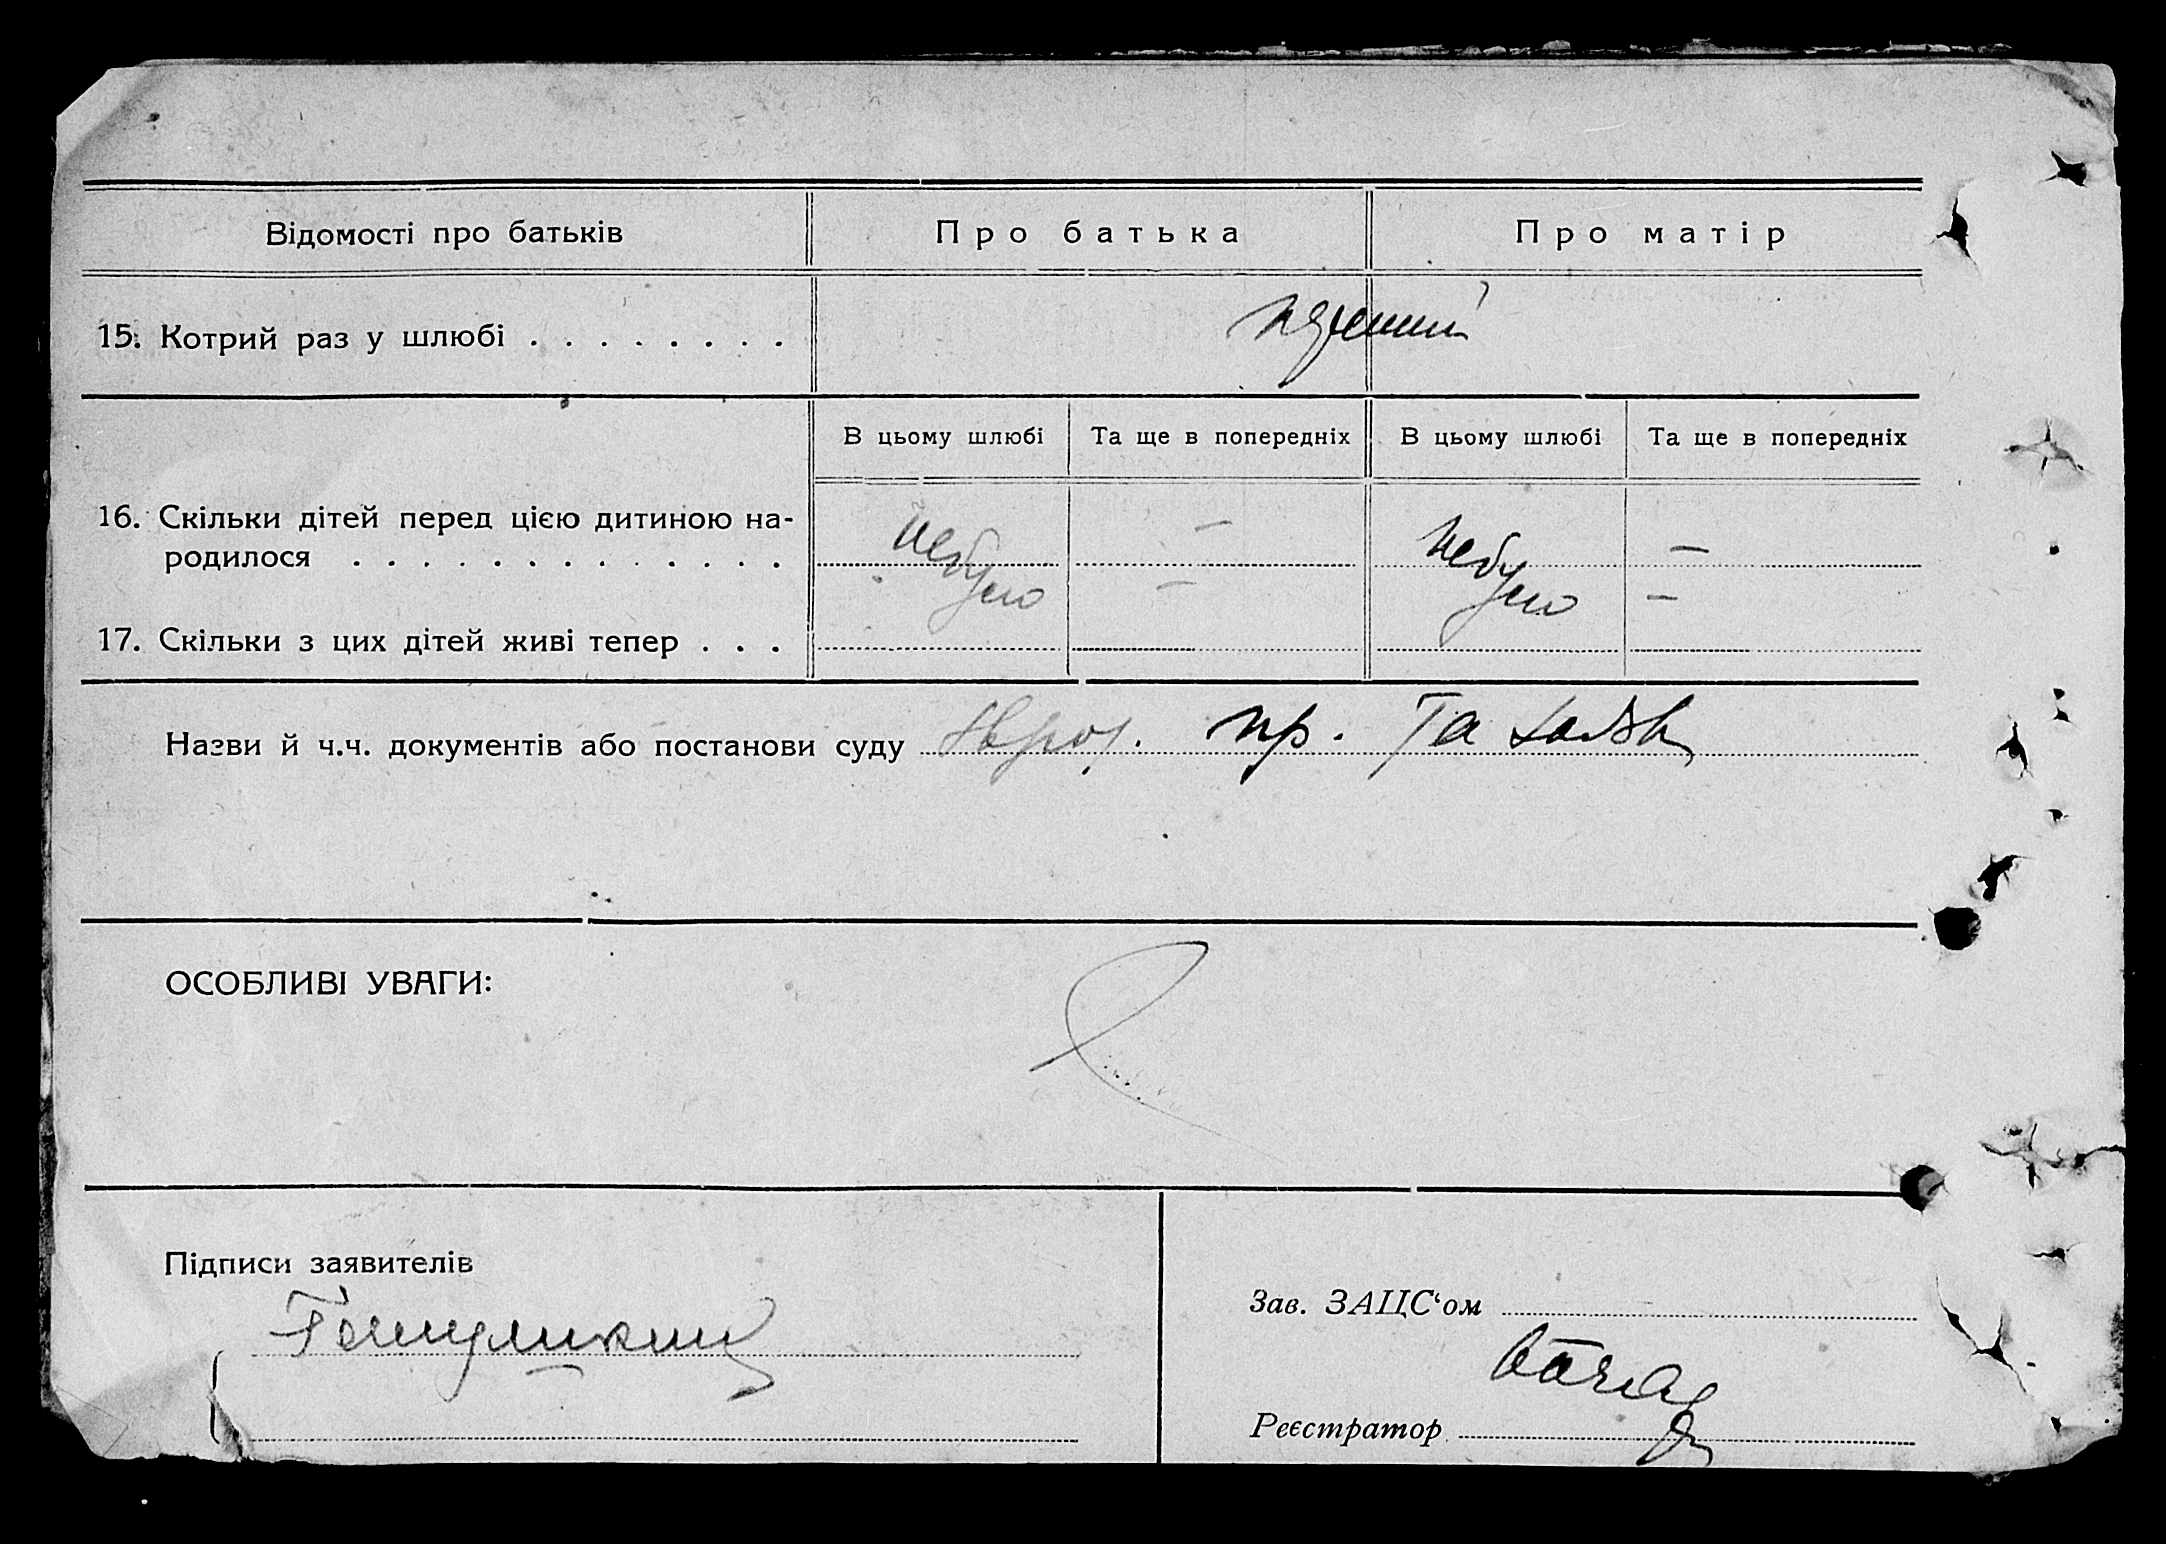 Відомості про батьків
Про батька
Про матір
15. Котрий раз у шлюбі . . . . . . . .
перший
В цьому шлюбі
Та ще в попередніх
В цьому шлюбі
Та ще в попередніх
16. Скільки дітей перед цією дитиною на-
родилося . . . . . . . . . . . . .
небуло
—
небуло
—
17. Скільки з цих дітей живі тепер . . .
—
—
Назви й ч.ч. документів або постанови суду пр. та
ОСОБЛИВІ УВАГИ:
Підписи заявителів
Зав. ЗАЦС‘ом
Реєстратор